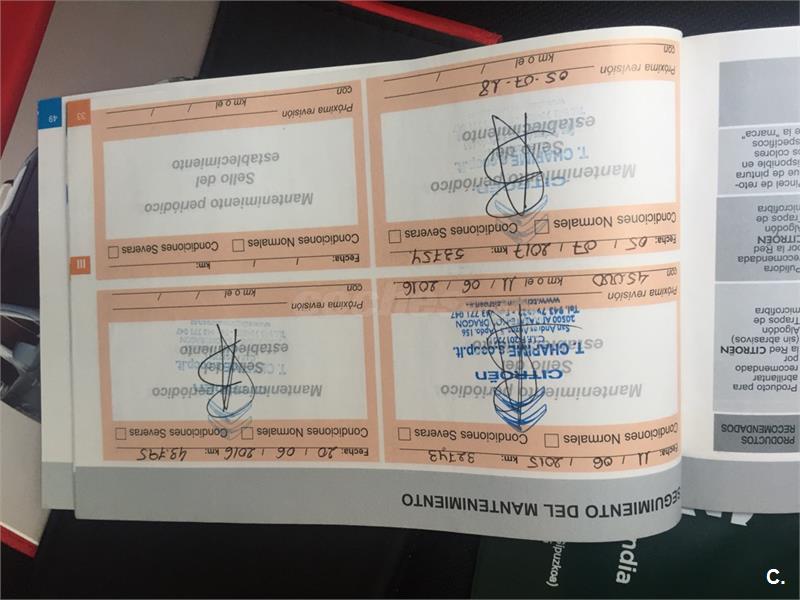 SEGUIMIENTO DEL MANTENIMIENTO
Fecha: 11 / 06 / 2015 km: 32743
Condiciones Normales Condiciones Severas
Mantenimiento periódico
Sello del
establecimiento
CITROËN
T. CHAPIME s.coop.lt.
Próxima revisión
con 45.000 km o el 11 / 06 / 2016
Fecha: 20 / 06 / 2016 km: 43.795
Condiciones Normales Condiciones Severas
Mantenimiento periódico
Sello del
establecimiento
Próxima revisión
con km o el / /
Fecha: 05 / 07 / 2017 km: 53754
Condiciones Normales Condiciones Severas
Mantenimiento periódico
Sello del
establecimiento
CITROËN
Próxima revisión
05-07-18
con km o el / /
Fecha: / / km:
Condiciones Normales Condiciones Severas
Mantenimiento periódico
Sello del
establecimiento
Próxima revisión
con km o el / /
III
33
49
PRODUCTOS
RECOMENDADOS
Producto para
abrillantar
recomendado
por
la Red CITROËN
(sin abrasivos)
Algodón
Trapos de
microfibra
Pulidora
recomendada
por la Red
CITROËN
Algodón
Trapos de
microfibra
Pincel de reto-
que de pintura
disponible en
los colores
específicos
de la "marca"
Gipuzkoa)
C.